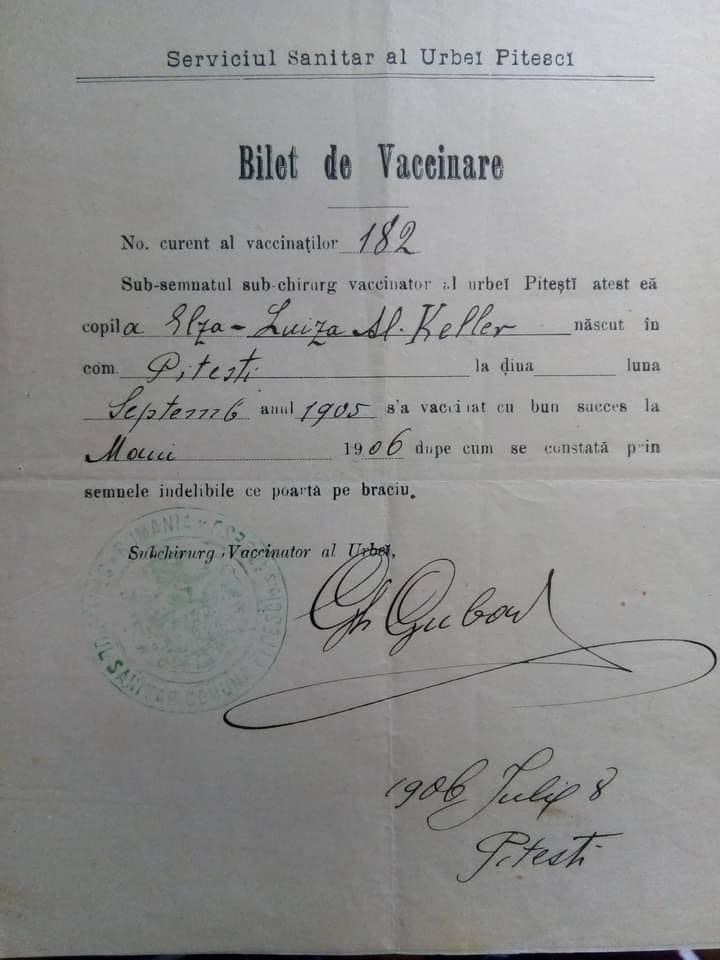 Serviciul Sanitar al Urbeĭ Pitescĭ
Bilet de Vaccinare
No. curent al vaccinaților 182
Sub-semnatul sub-chirurg vaccinator al urbeĭ Piteștĭ atest că
copila Elza-Luiza Al. Keller născut în
com. Pitesti la ḑiua luna
Septemb anul 1905 s'a vaccinat cu bun succes la
1906 dupe cum se constată prin
semnele indelibile ce poartă pe braciu.
Subchirurg Vaccinator al Urbeĭ,
Gh
1906 Julie 8
Pitesti
ROMANIA
SANITAR COMUNA